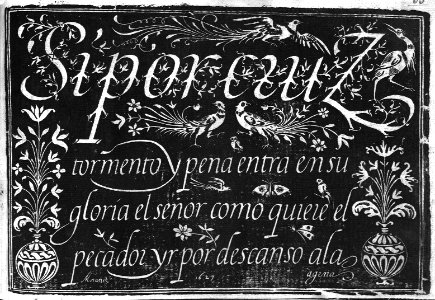 Si por cruZ
tormento y pena entra en su
gloria el señor como quiere el
pecador yr por descanso a la
agena